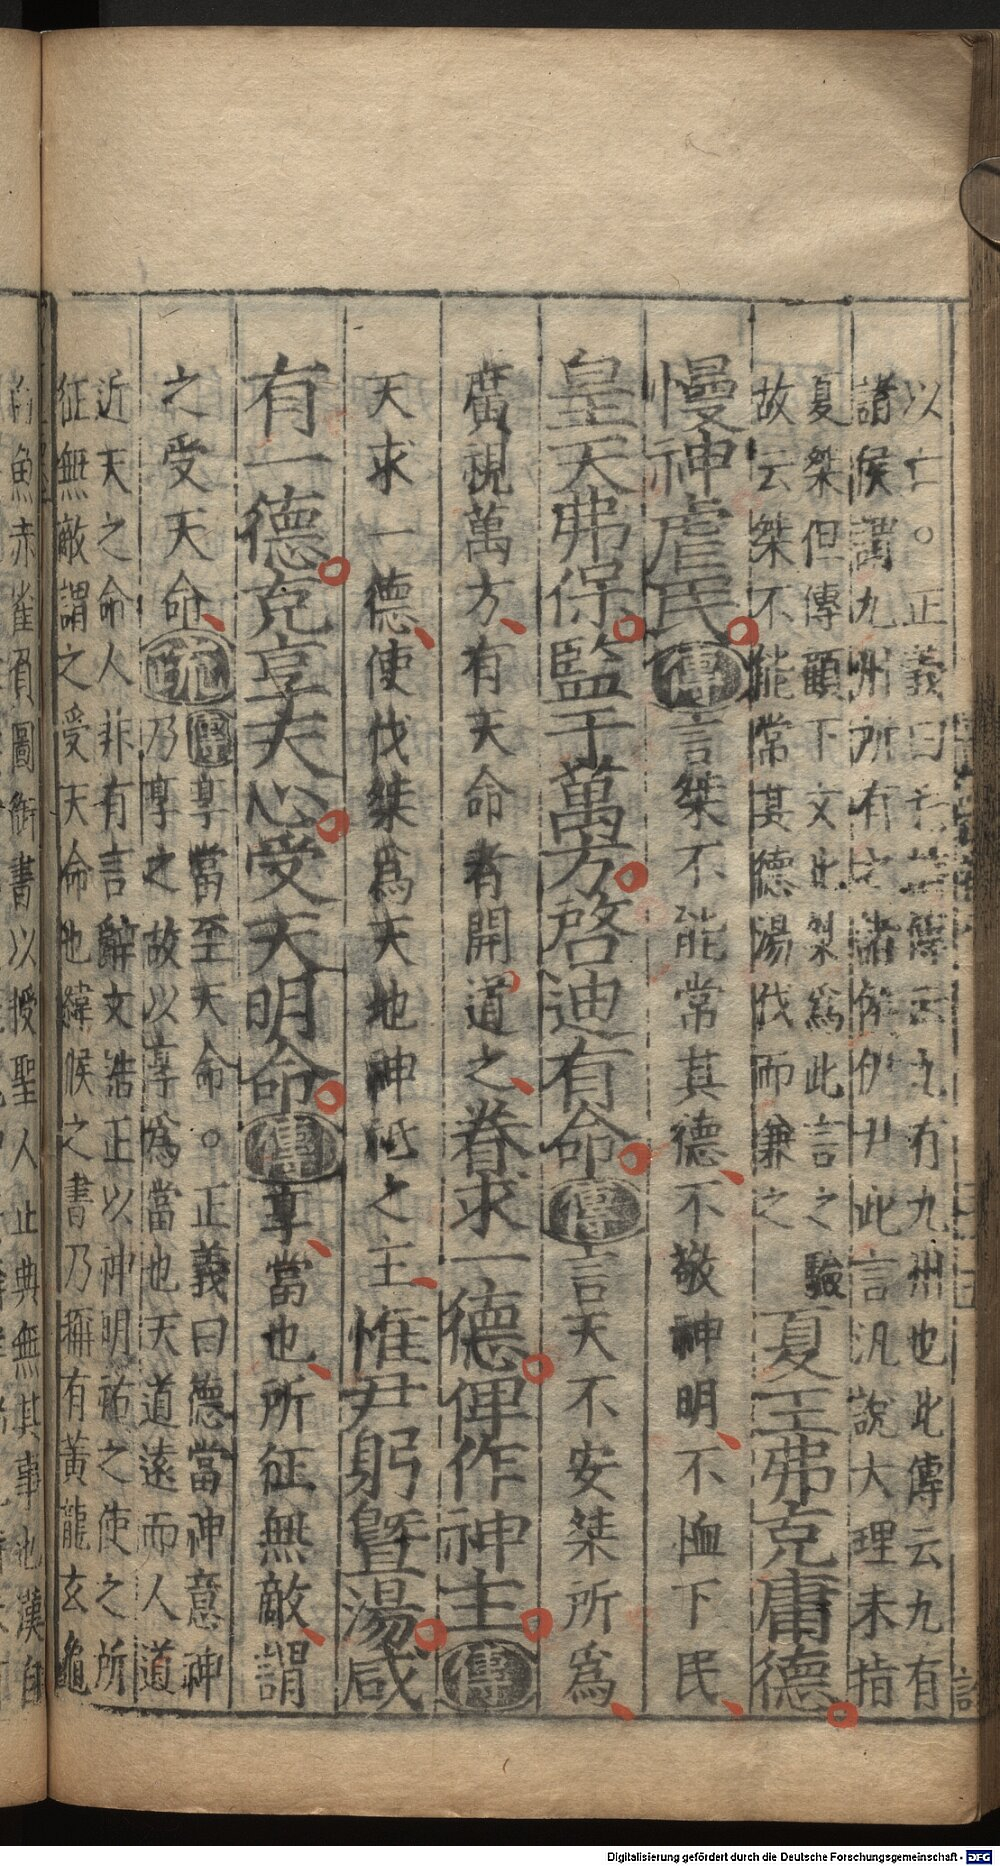 以亡○正義曰亡
有九州也此傳云九有
諸侯謂九州所有之諸侯伊尹此言汎說大理未指
夏桀但傳顧下文比桀爲此言之驗
故云桀不能常其德湯伐而兼之
夏王弗克庸德
慢神虐民傳言桀不能常其德不敬神明不恤下民
皇天弗保監于萬方啓迪有命傳言天不安桀所爲
廣視萬方有天命者開道之眷求一德俾作神主傳
天求一德使伐桀爲天地神祇之主惟尹躬曁湯咸
有一德克享天心受天明命傳享當也所征無敵謂
之受天命疏
傳享當至天命○正義曰德當神意神
乃享之故以享爲當也天道遠而人道
近天之命人非有言辭文誥正以神明祐之使之所
征無敵謂之受天命也緯候之書乃稱有黃龍玄龜
魚赤雀負圖銜書以授聖人止典無其事也漢自
Digitalisierung gefördert durch die Deutsche Forschungsgemeinschaft - DFG